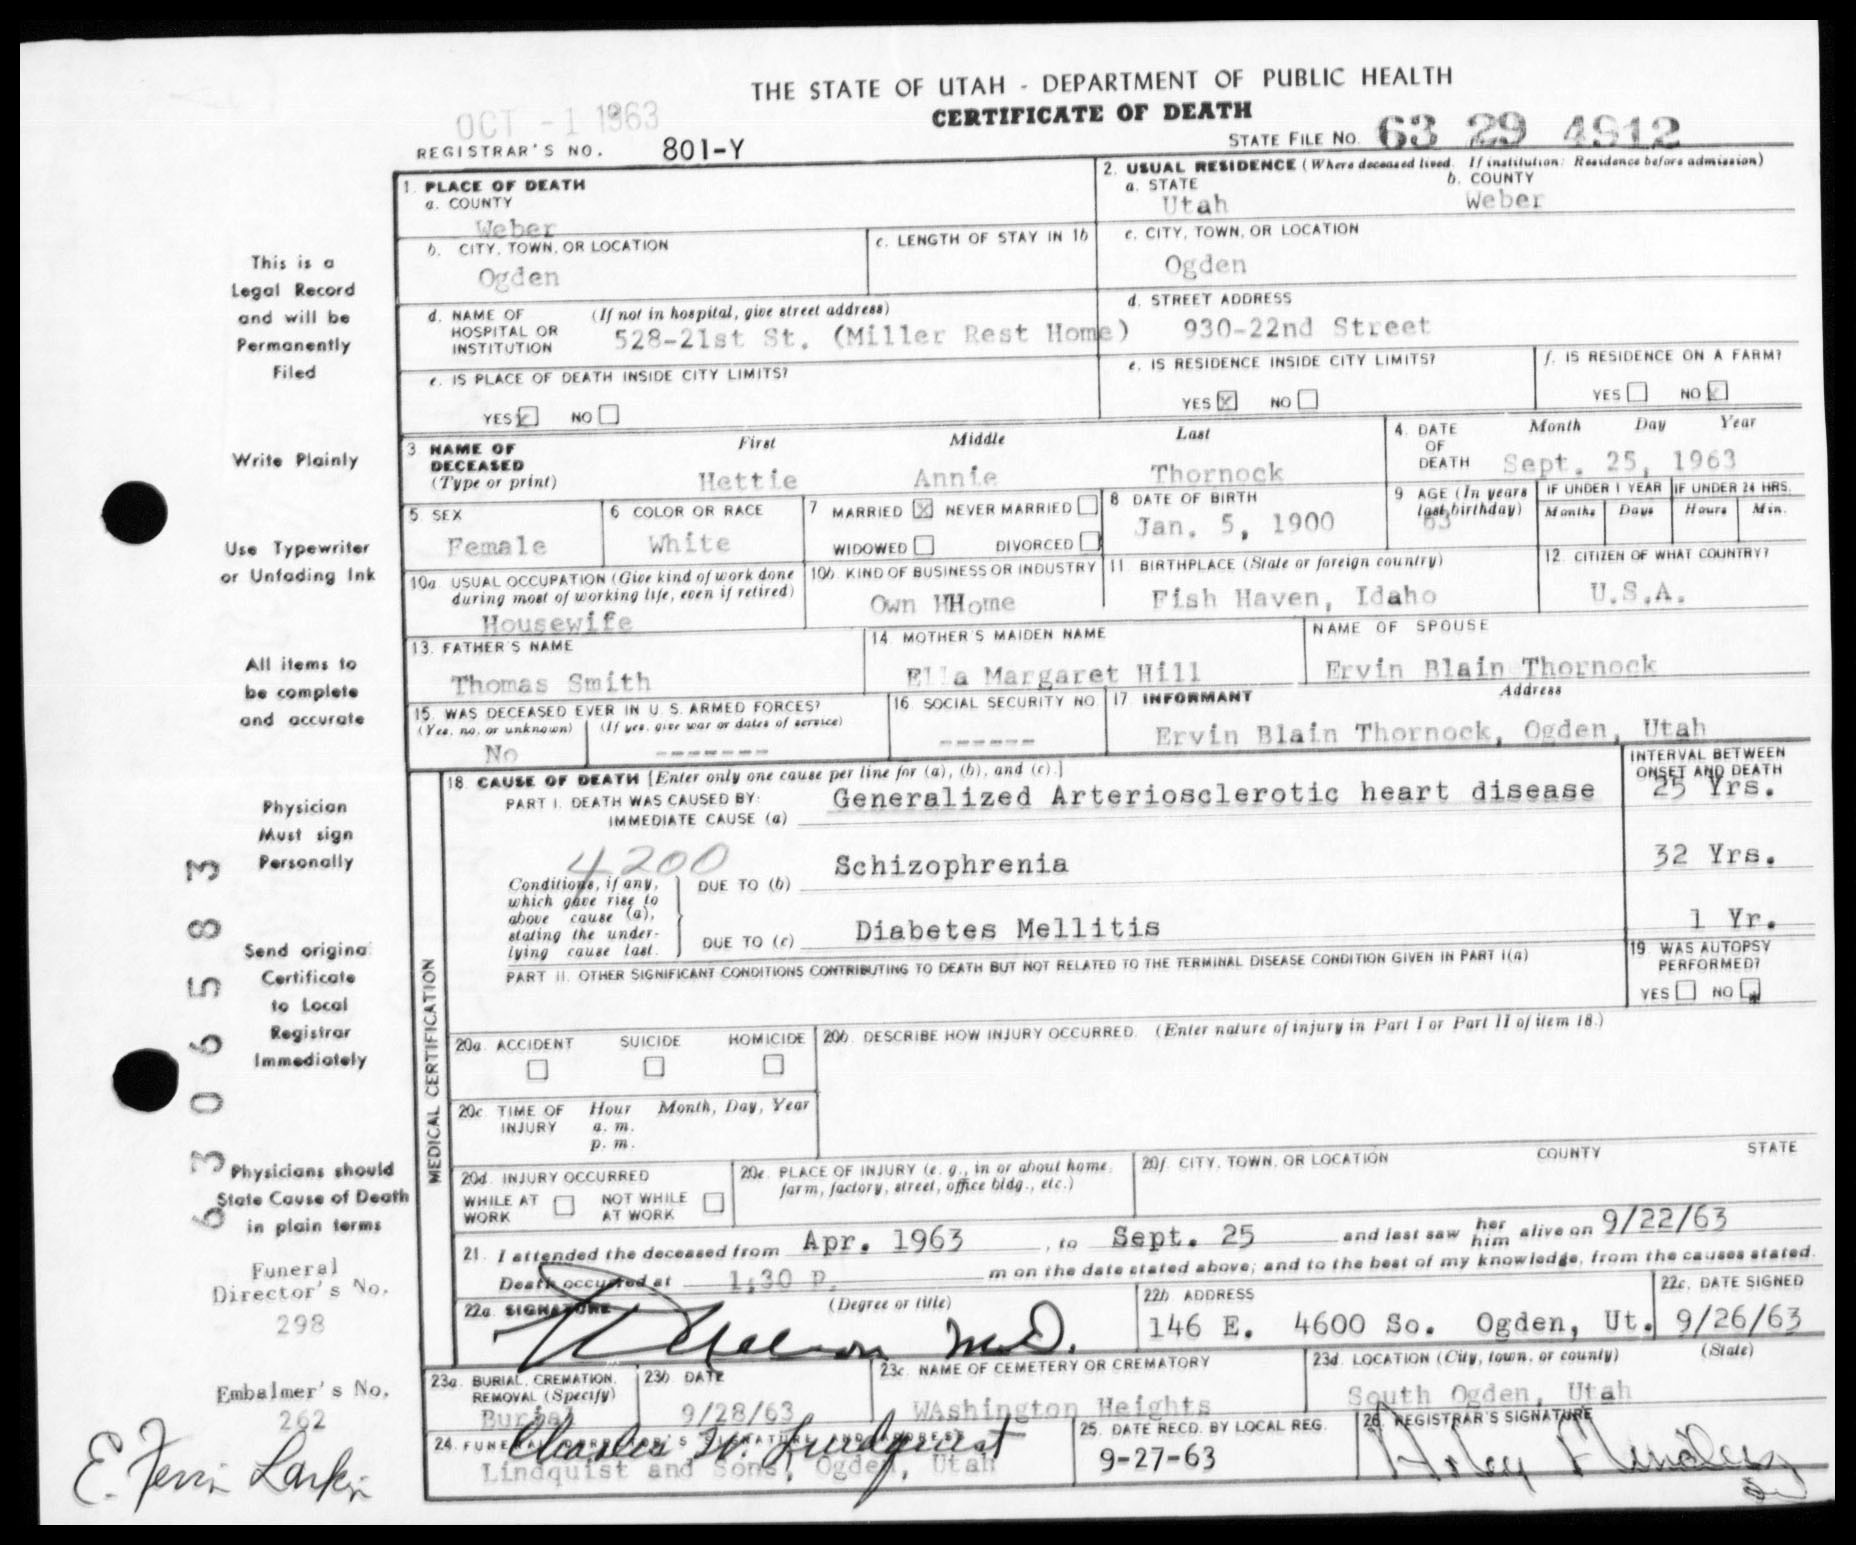 THE STATE OF UTAH - DEPARTMENT OF PUBLIC HEALTH
CERTIFICATE OF DEATH
OCT - 1 1963
REGISTRAR'S NO. 801-Y
STATE FILE NO. 63 29 4912
1. PLACE OF DEATH
a. COUNTY
Weber
2. USUAL RESIDENCE (Where deceased lived. If institution: Residence before admission)
a. STATE
Utah
b. COUNTY
Weber
b. CITY, TOWN, OR LOCATION
Ogden
c. LENGTH OF STAY IN 1b
c. CITY, TOWN, OR LOCATION
Ogden
d. NAME OF HOSPITAL OR INSTITUTION
(If not in hospital, give street address)
528-21st St. (Miller Rest Home)
d. STREET ADDRESS
930-22nd Street
e. IS PLACE OF DEATH INSIDE CITY LIMITS?
YES x NO
e. IS RESIDENCE INSIDE CITY LIMITS?
YES X NO
f. IS RESIDENCE ON A FARM?
YES NO x
3. NAME OF DECEASED
(Type or print)
First Middle Last
Hettie Annie Thornock
4. DATE OF DEATH
Month Day Year
Sept. 25, 1963
5. SEX
Female
6 COLOR OR RACE
White
7 MARRIED X NEVER MARRIED
WIDOWED DIVORCED
8 DATE OF BIRTH
Jan. 5, 1900
9 AGE (In years last birthday)
63
IF UNDER 1 YEAR
Months Days
IF UNDER 24 HRS.
Hours Min.
10a. USUAL OCCUPATION (Give kind of work done during most of working life, even if retired)
Housewife
10b. KIND OF BUSINESS OR INDUSTRY
Own HHome
11 BIRTHPLACE (State or foreign country)
Fish Haven, Idaho
12. CITIZEN OF WHAT COUNTRY?
U.S.A.
13. FATHER'S NAME
Thomas Smith
14. MOTHER'S MAIDEN NAME
Ella Margaret Hill
NAME OF SPOUSE
Ervin Blain Thornock
15. WAS DECEASED EVER IN U. S. ARMED FORCES?
(Yes, no, or unknown) (If yes, give war or dates of service)
No -------
16. SOCIAL SECURITY NO.
------
17. INFORMANT Address
Ervin Blain Thornock, Ogden, Utah
MEDICAL CERTIFICATION
18. CAUSE OF DEATH [Enter only one cause per line for (a), (b), and (c).]
INTERVAL BETWEEN ONSET AND DEATH
PART I. DEATH WAS CAUSED BY:
IMMEDIATE CAUSE (a) Generalized Arteriosclerotic heart disease 25 Yrs.
4200
Conditions, if any, which gave rise to above cause (a), stating the underlying cause last.
DUE TO (b) Schizophrenia 32 Yrs.
DUE TO (c) Diabetes Mellitis 1 Yr.
PART II. OTHER SIGNIFICANT CONDITIONS CONTRIBUTING TO DEATH BUT NOT RELATED TO THE TERMINAL DISEASE CONDITION GIVEN IN PART I(a)
19 WAS AUTOPSY PERFORMED?
YES NO
20a. ACCIDENT SUICIDE HOMICIDE
20b. DESCRIBE HOW INJURY OCCURRED. (Enter nature of injury in Part I or Part II of item 18.)
20c. TIME OF INJURY Hour Month, Day, Year
a. m.
p. m.
20d. INJURY OCCURRED
WHILE AT WORK NOT WHILE AT WORK
20e. PLACE OF INJURY (e. g., in or about home, farm, factory, street, office bldg., etc.)
20f. CITY, TOWN, OR LOCATION COUNTY STATE
21. I attended the deceased from Apr. 1963, to Sept. 25 and last saw her him alive on 9/22/63
Death occurred at 1;30 P. m on the date stated above; and to the best of my knowledge, from the causes stated.
22a. SIGNATURE (Degree or title)
M.D.
22b. ADDRESS
146 E. 4600 So. Ogden, Ut.
22c. DATE SIGNED
9/26/63
23a. BURIAL, CREMATION, REMOVAL (Specify)
Burial
23b. DATE
9/28/63
23c. NAME OF CEMETERY OR CREMATORY
WAshington Heights
23d. LOCATION (City, town, or county) (State)
South Ogden, Utah
24. FUNERAL DIRECTOR'S SIGNATURE AND ADDRESS
Charles W. Lindquist
Lindquist and Sons, Ogden, Utah
25. DATE RECD. BY LOCAL REG.
9-27-63
26. REGISTRAR'S SIGNATURE
This is a
Legal Record
and will be
Permanently
Filed
Write Plainly
Use Typewriter
or Unfading Ink
All items to
be complete
and accurate
Physician
Must sign
Personally
Send original
Certificate
to Local
Registrar
Immediately
Physicians should
State Cause of Death
in plain terms
Funeral
Director's No.
298
Embalmer's No.
262
E. Ferrin Larkin
6306583